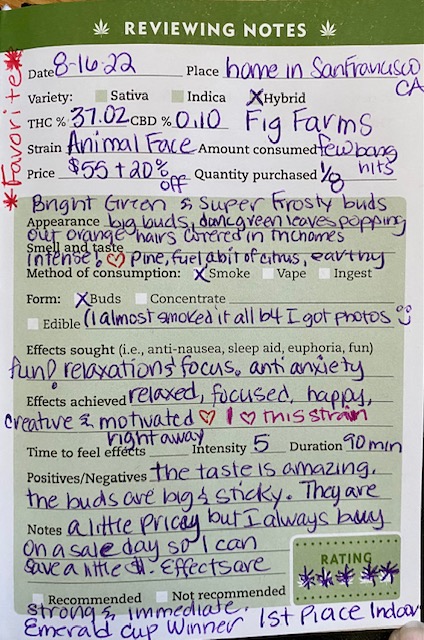 REVIEWING NOTES
*Favorite*
Date 8-16-22 Place home in San Francisco CA
Variety: Sativa Indica X Hybrid
THC % 37.02 CBD % 0.10 Fig Farms
Strain Animal Face Amount consumed few bong hits
Price $55 + 20% off Quantity purchased 1/8
Bright Green & Super Frosty buds
Appearance big buds, dark green leaves popping
out orange hairs covered in trichomes
Smell and taste
intense! ♡ Pine, fuel, a bit of citrus, earthy
Method of consumption: X Smoke Vape Ingest
Form: X Buds Concentrate
Edible (I almost smoked it all b4 I got photos
Effects sought (i.e., anti-nausea, sleep aid, euphoria, fun)
fun! relaxation & focus, anti anxiety
Effects achieved relaxed, focused, happy,
creative & motivated ♡ I ♡ this strain
Time to feel effects right away Intensity 5 Duration 90 min
Positives/Negatives the taste is amazing.
the buds are big & sticky. They are
Notes a little pricey but I always buy
on a sale day so I can
save a little $. Effects are
RATING
Recommended Not recommended
strong & immediate.
Emerald Cup Winner 1st Place Indoor